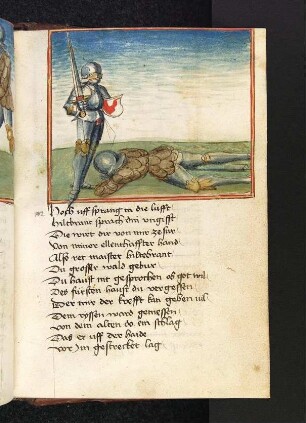 Hoch uff sprang in die lufft
hiltbrant sprach din vngifft
Die wirt dir von mir ze sur
Von miner ellenthaffter hand
Also ret maister hiltebrant
Du grosser wald gebur
Du haust mit gesprochen ob got wil
Des fürsten haust du vergessen
Der mir der krefft kan geben vil
Dem rossen ward gemessen
von dem alten do ein schlag
Das er uff der haide
vor im gestrecket lag